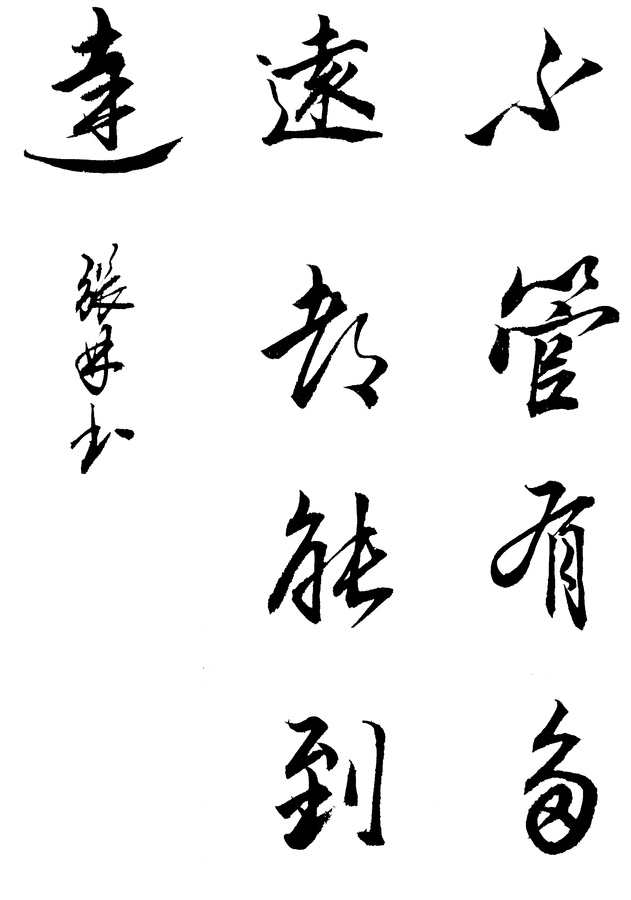 不管有多
遠都能到
達
張丹书